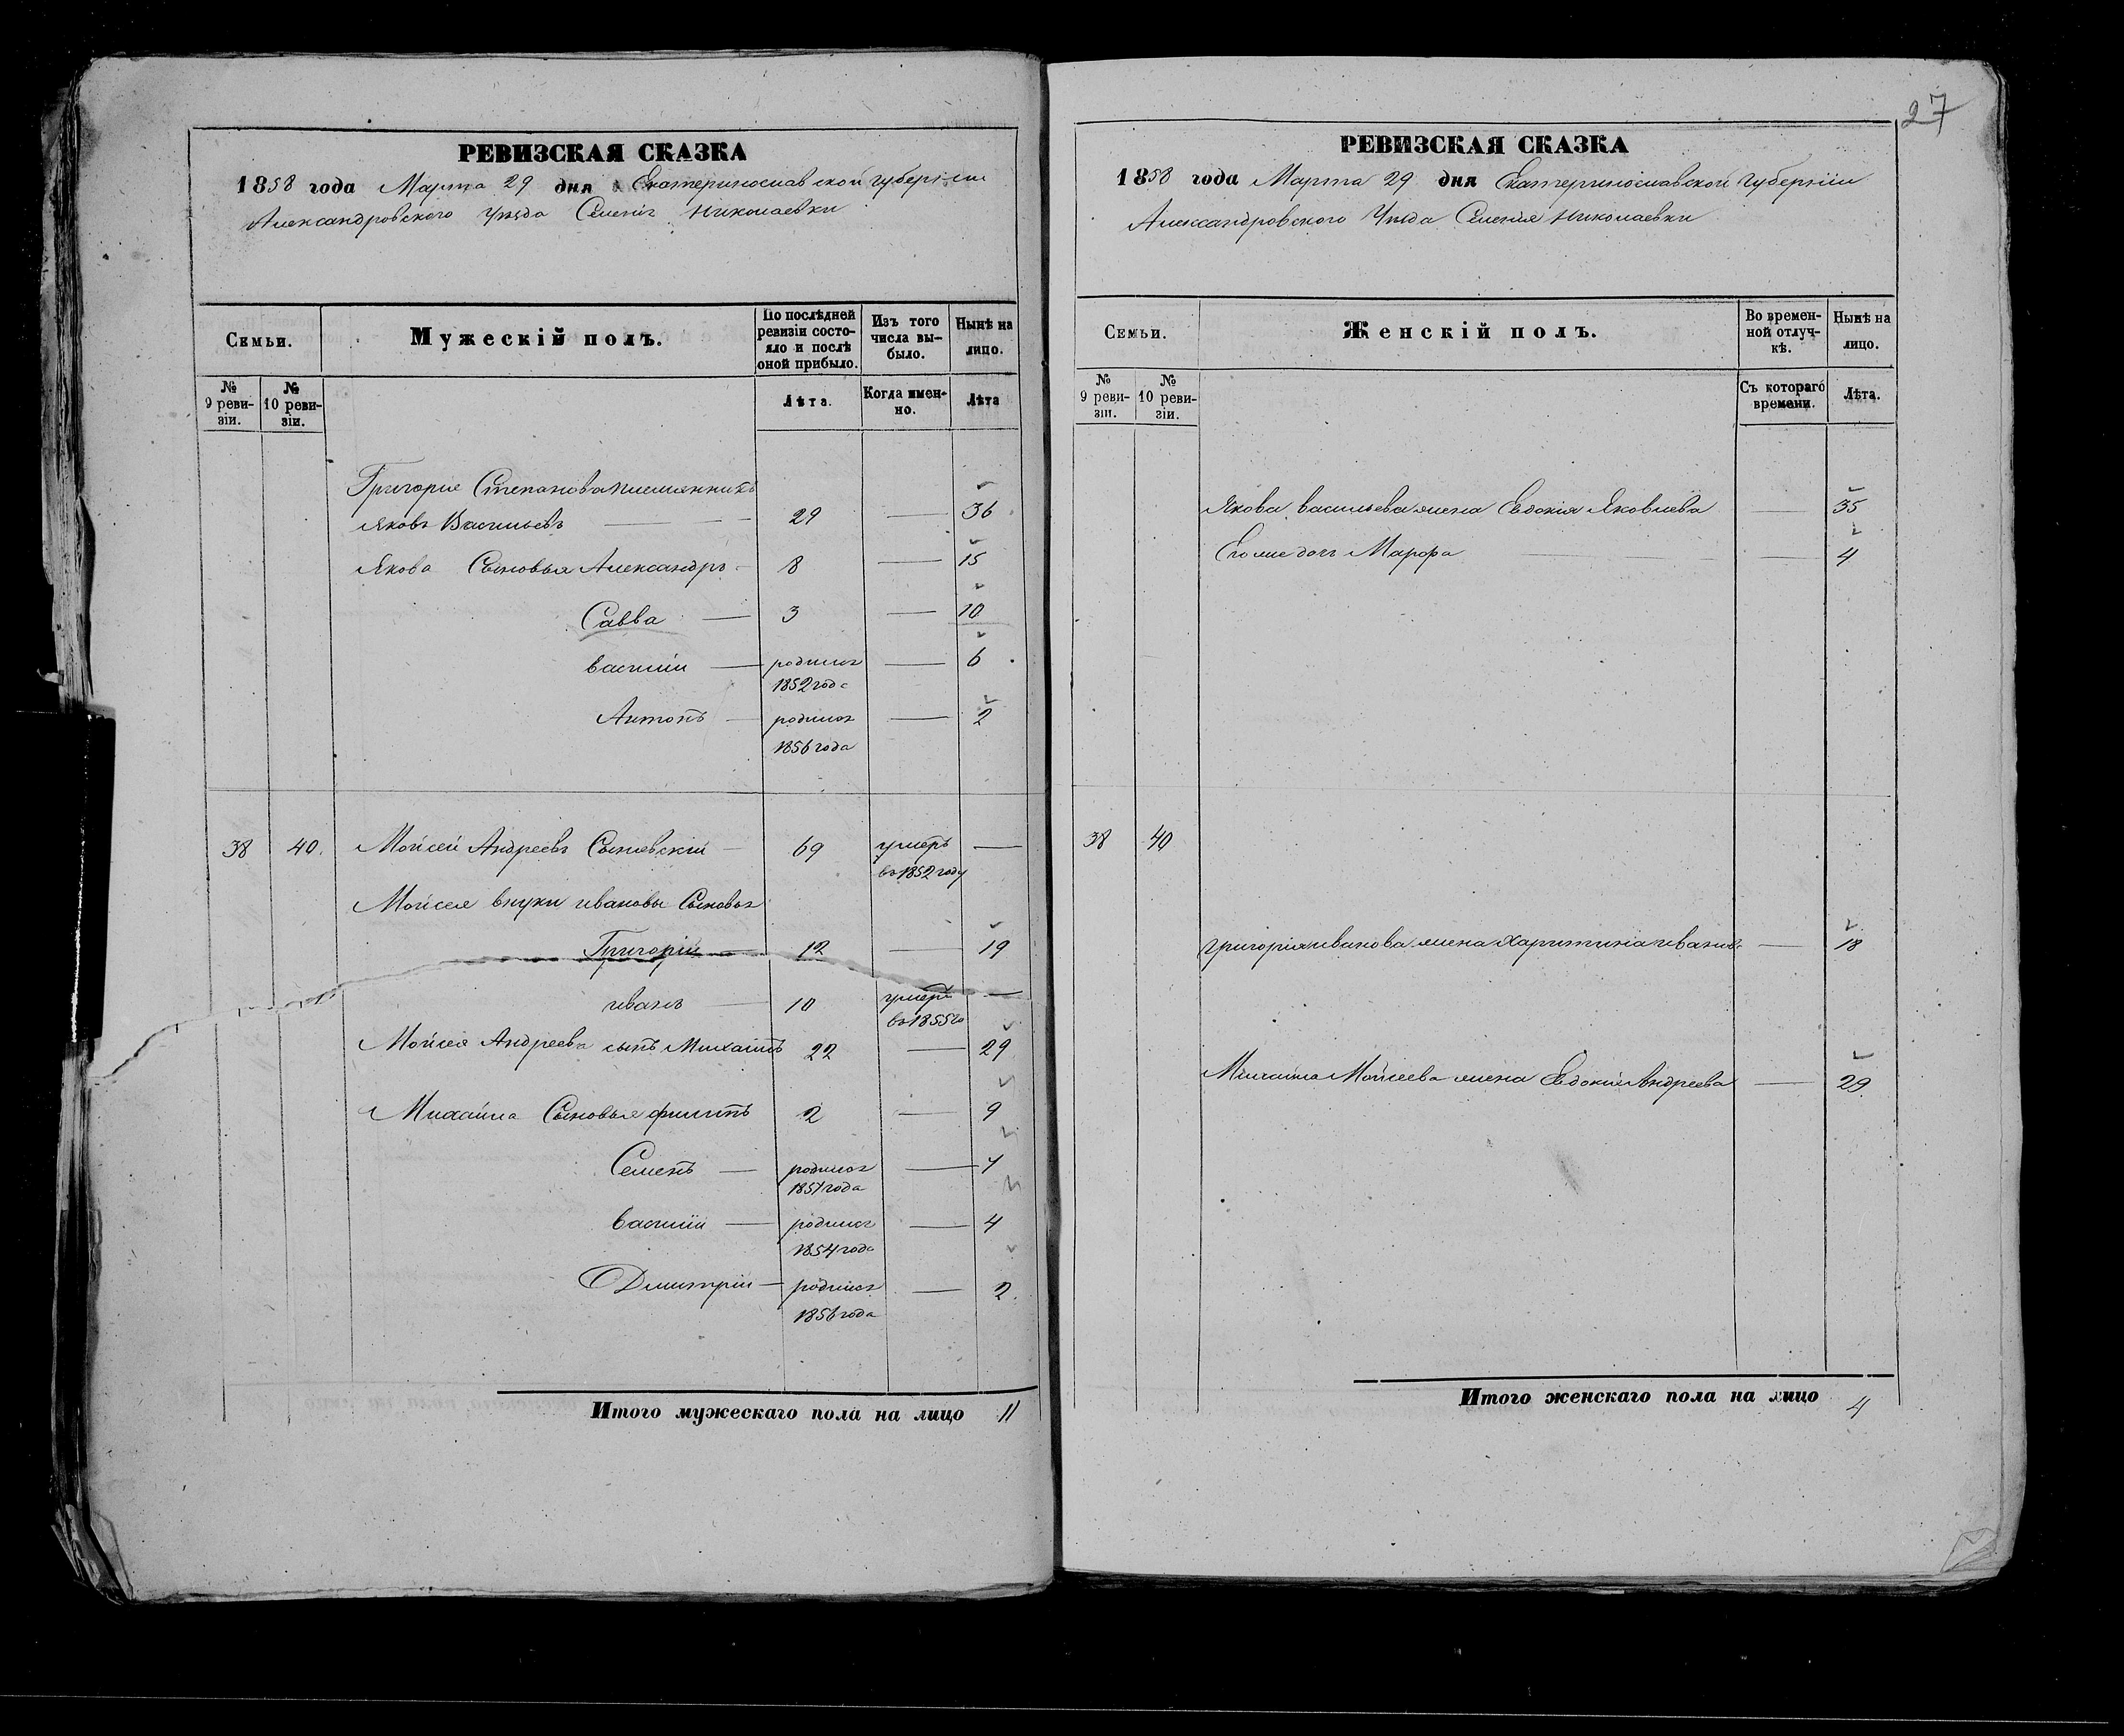 27
РЕВИЗСКАЯ СКАЗКА
1858 года Марта 29 дня Екатеринославской губернии
Александровского уезда Селения Николаевки
Семьи.
Мужескій полъ.
По послѣдней ревизіи состояло и послѣ оной прибыло.
Изъ того числа выбыло.
Нынѣ на лицо.
№ 9 ревизіи.
№ 10 ревизіи.
Лѣта.
Когда именно.
Лѣта
Григорія Степанова племянникъ
Яковъ Васильевъ 29 — 36
Якова Сыновья Александръ 8 — 15
Савва — 3 — 10
василій — родился 1852 года — 6
Антонъ — родился 1856 года — 2
38 40. Мойсей Андреевъ 69 умеръ въ 1852 году —
Мойсея внуки ивановы Сыновья
Григорій — 12 — 19
иванъ — 10 умеръ въ 1855 го —
Мойсея Андреева сынъ Михаилъ 22 — 29
Михайла Сыновья филипъ 2 — 9
Семенъ — родился 1851 года — 7
василій — родился 1854 года — 4
Дмитрій — родился 1856 года — 2.
Итого мужескаго пола на лицо 11
РЕВИЗСКАЯ СКАЗКА
1858 года Марта 29 дня Екатеринославской губерніи
Александровского Уезда Селенія Николаевки
Семьи.
Женскій полъ.
Во временной отлучкѣ.
Нынѣ на лицо.
№ 9 ревизіи.
№ 10 ревизіи.
Съ котораго времени.
Лѣта.
Якова васильева жена Евдокія Яковлева — 35
Его же дочь Марфа — 4
38 40
григорія иванова жена Харитина иванов. — 18
Михайла Мойсеева жена Евдокия Андреева — 29.
Итого женскаго пола на лицо 4